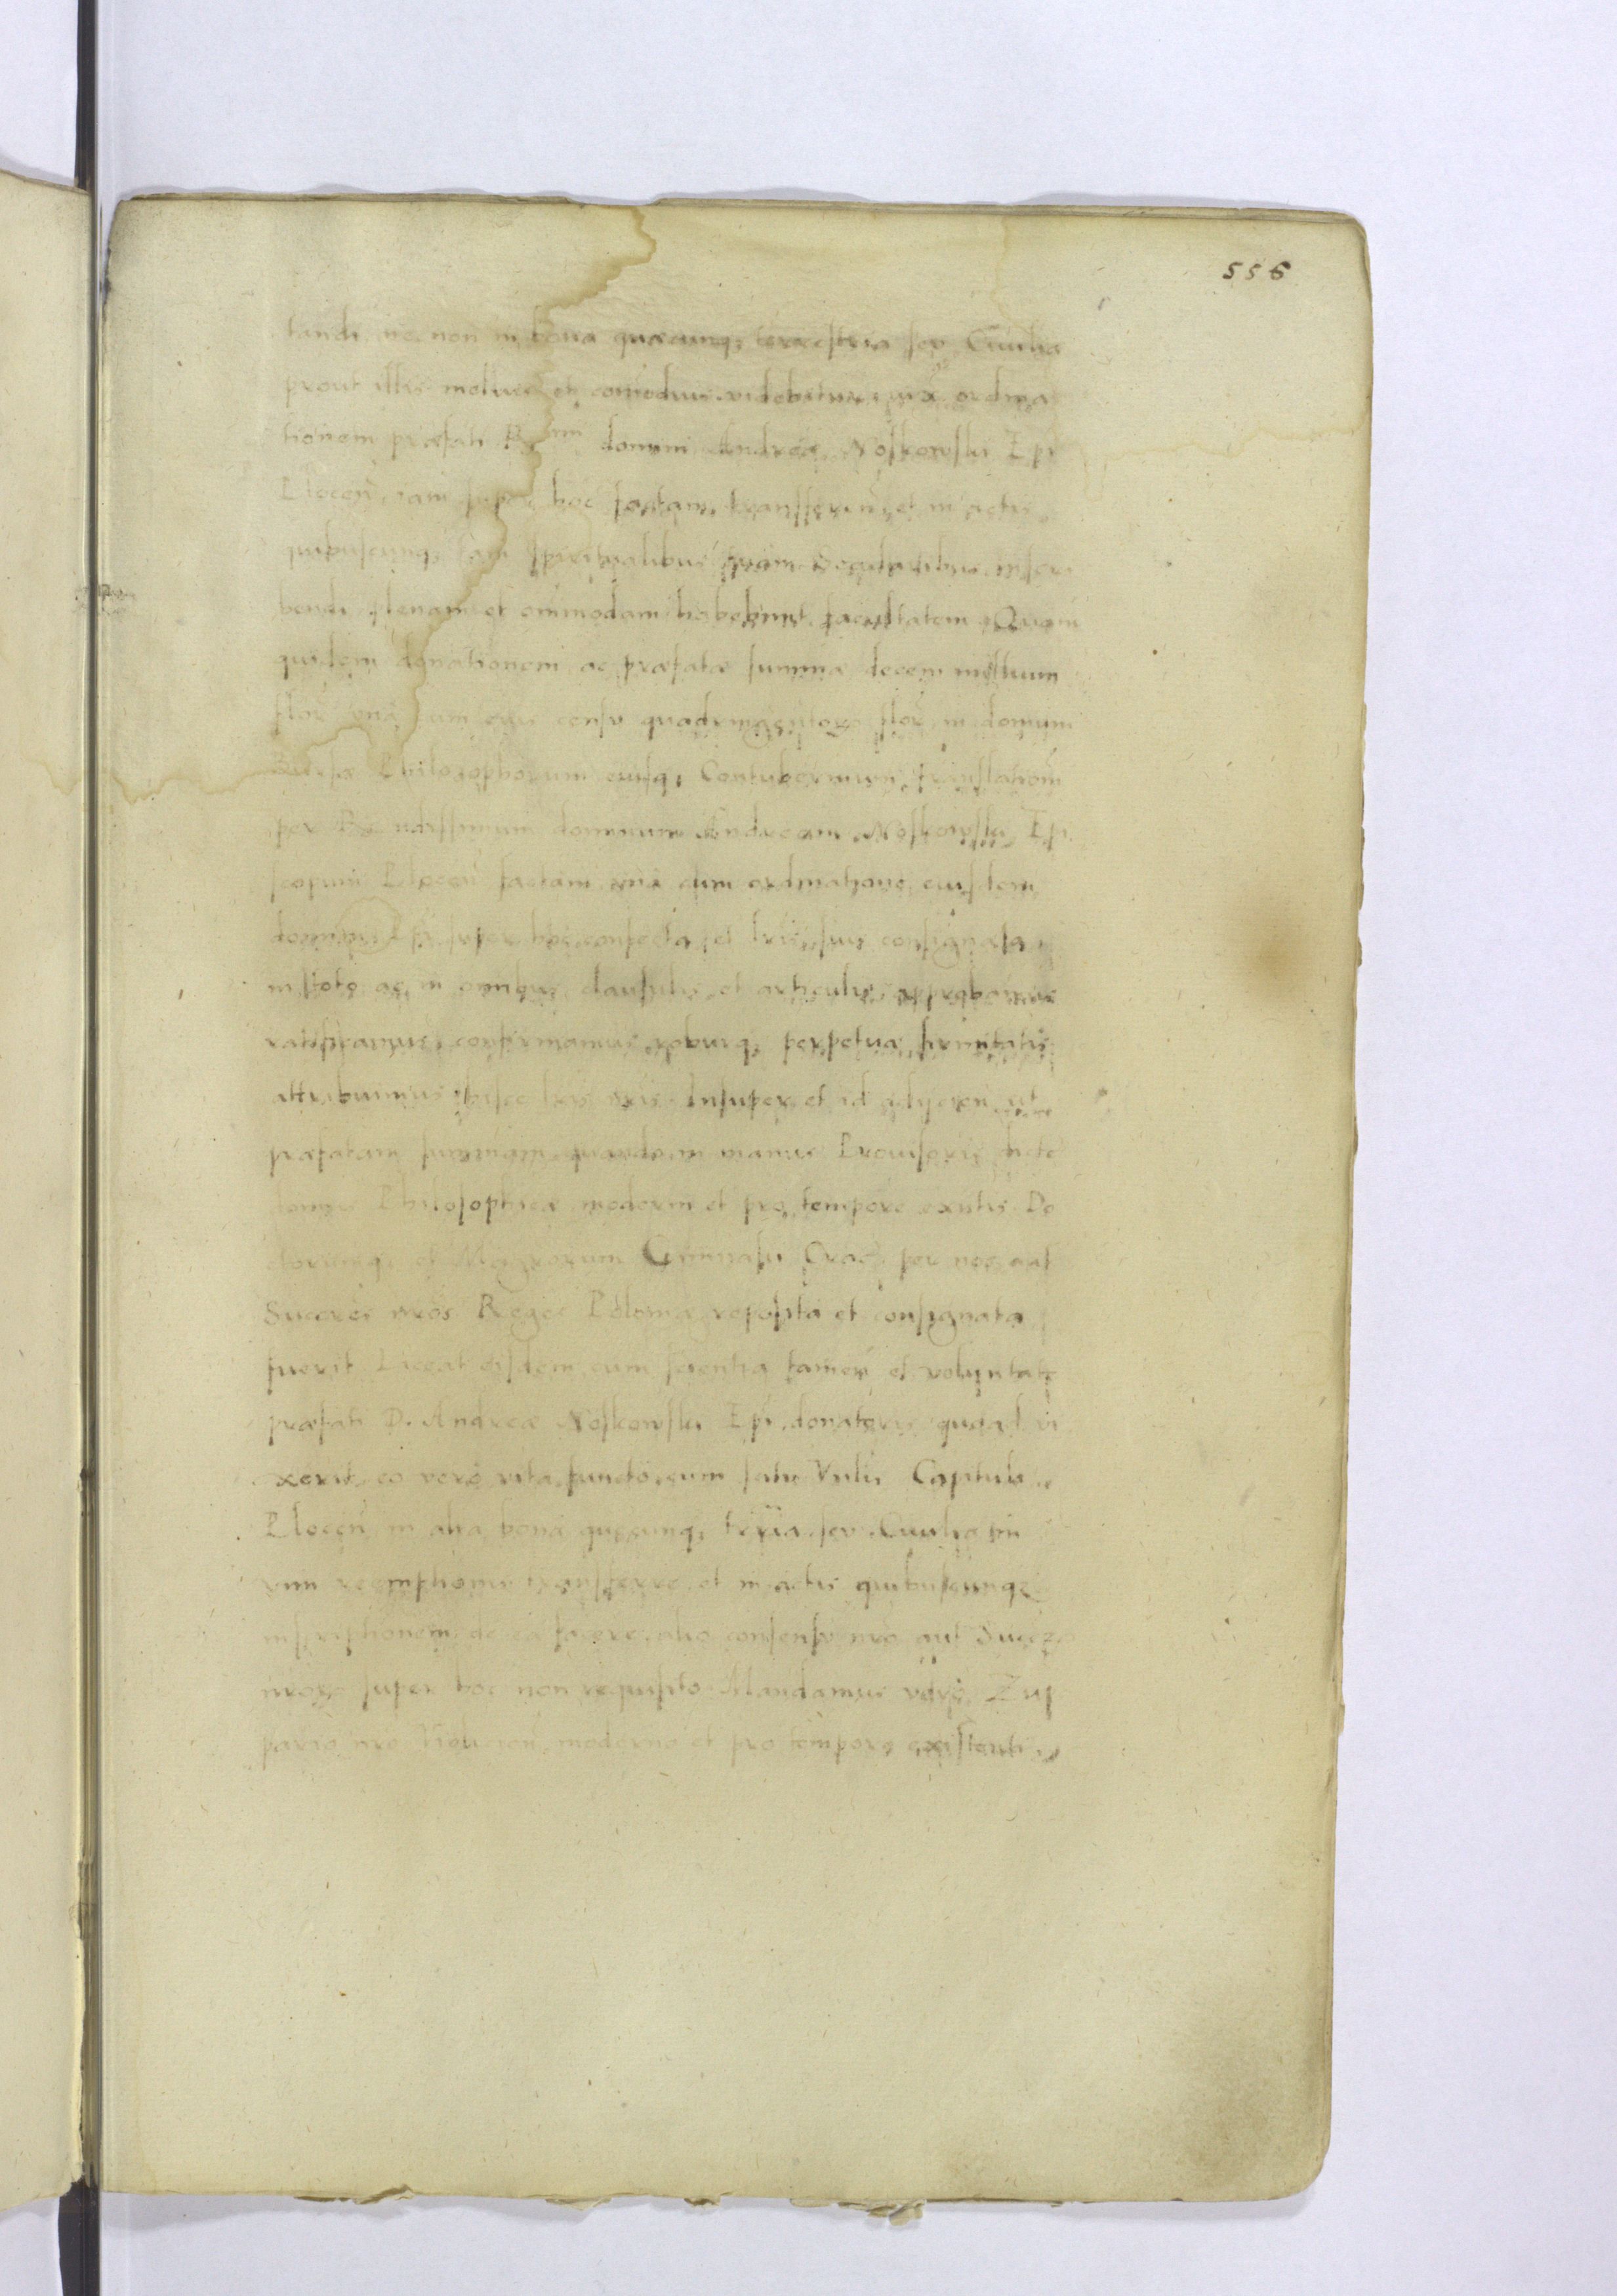 556
tandi, nec non in bona quæcunq; terrestria seu Ciuilia
prout illis melius et comodius videbitur, iuxa ordina
tionem præfati R domini Andreæ Noskowski Epi
Plocen̄, iam super hoc factam, transferen̄, et in actis
quibuscunq; tam spiritualibus quam Secularibus inscri
bendi plenam et omnimodam habebunt facultatem. Quam
quidem donationem ac præfatæ summæ decem millium
flor̄ vna cum eius censu quadringentor̄ flor̄ in domum
Philosophorum eiusq; Contubernium, translationem
per Re ndissimum dominum Andream Noskowski Epi
scopum Plocen̄ factam, vna cum ordinatione eiusdem
domini Epi super hoc confecta et lr̄is suis consignata
in toto ac in omnibus clausulis et articulis approbamus
ratificamus, confirmamus, roburq; perpetuæ firmitatis
attribuimus hisce lr̄is nr̄is. Insuper et id adijcien̄, ut
præfatam summam quando in manus Prouisoris dictæ
domus Philosophicæ moderni et pro tempore exn̄tis Do
ctorumq; et Mag̃rorum Gymnasij Crac̄, per nos aut
Succres nr̄os Reges Poloniæ reposita et consignata
fuerit Liceat eisdem cum scientia tamen et voluntate
præfati D. Andreæ Noskowski Epi donatoris quoad vi
xerit, eo vero vita functo, cum scitu Vn̄lis Capituli
Plocen̄ in alia bona quæcunq; terr̄ia seu Ciuilia
vim reemptionis transferre, et in actis quibuscunq;
inscriptionem de ea facere, alio consensu nr̄o aut Succr̄
nr̄or̄ super hoc non requisito. Mandamus vero Zup
pario nr̄o Vielicien̄ moderno et pro tempore existenti